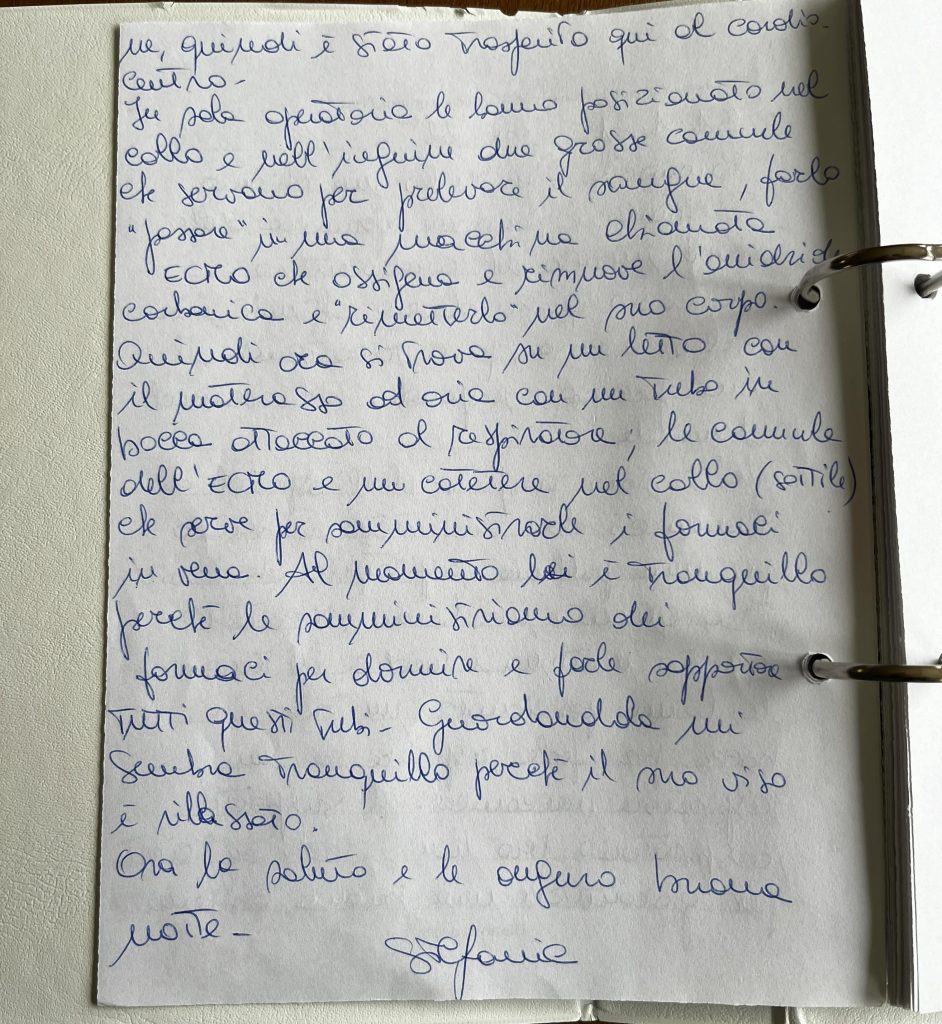 ne, quindi è stato trasferito qui al cardio-
centro-
In sala operatoria le hanno posizionato nel
collo e nell'inguine due grosse cannule
che servono per prelevare il sangue, farlo
"passare" in una macchina chiamata
ECMO che ossigena e rimuove l'anidride
carbonica e "rimetterlo" nel suo corpo.
Quindi ora si trova su un letto con
il materasso ad aria con un tubo in
bocca attaccato al respiratore, le cannule
dell'ECMO e un catetere nel collo (sottile)
che serve per somministrarle i farmaci
in vena. Al momento lei è tranquillo
perché le somministriamo dei
farmaci per dormire e farle sopportare
tutti questi tubi- Guardandola mi
sembra tranquillo perché il suo viso
è rilassato.
Ora la saluto e le auguro buona
notte-
Stefania